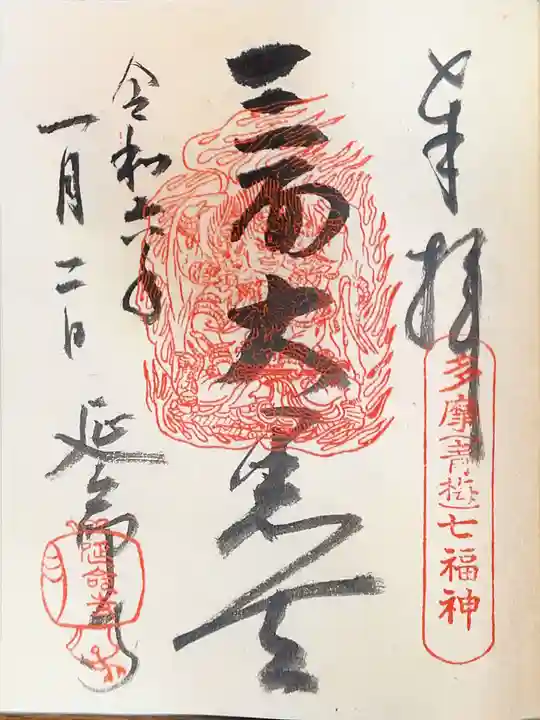 奉拝
多摩(青梅)七福神
三面大黒天
令和六年
一月二日
延命寺
延命寺